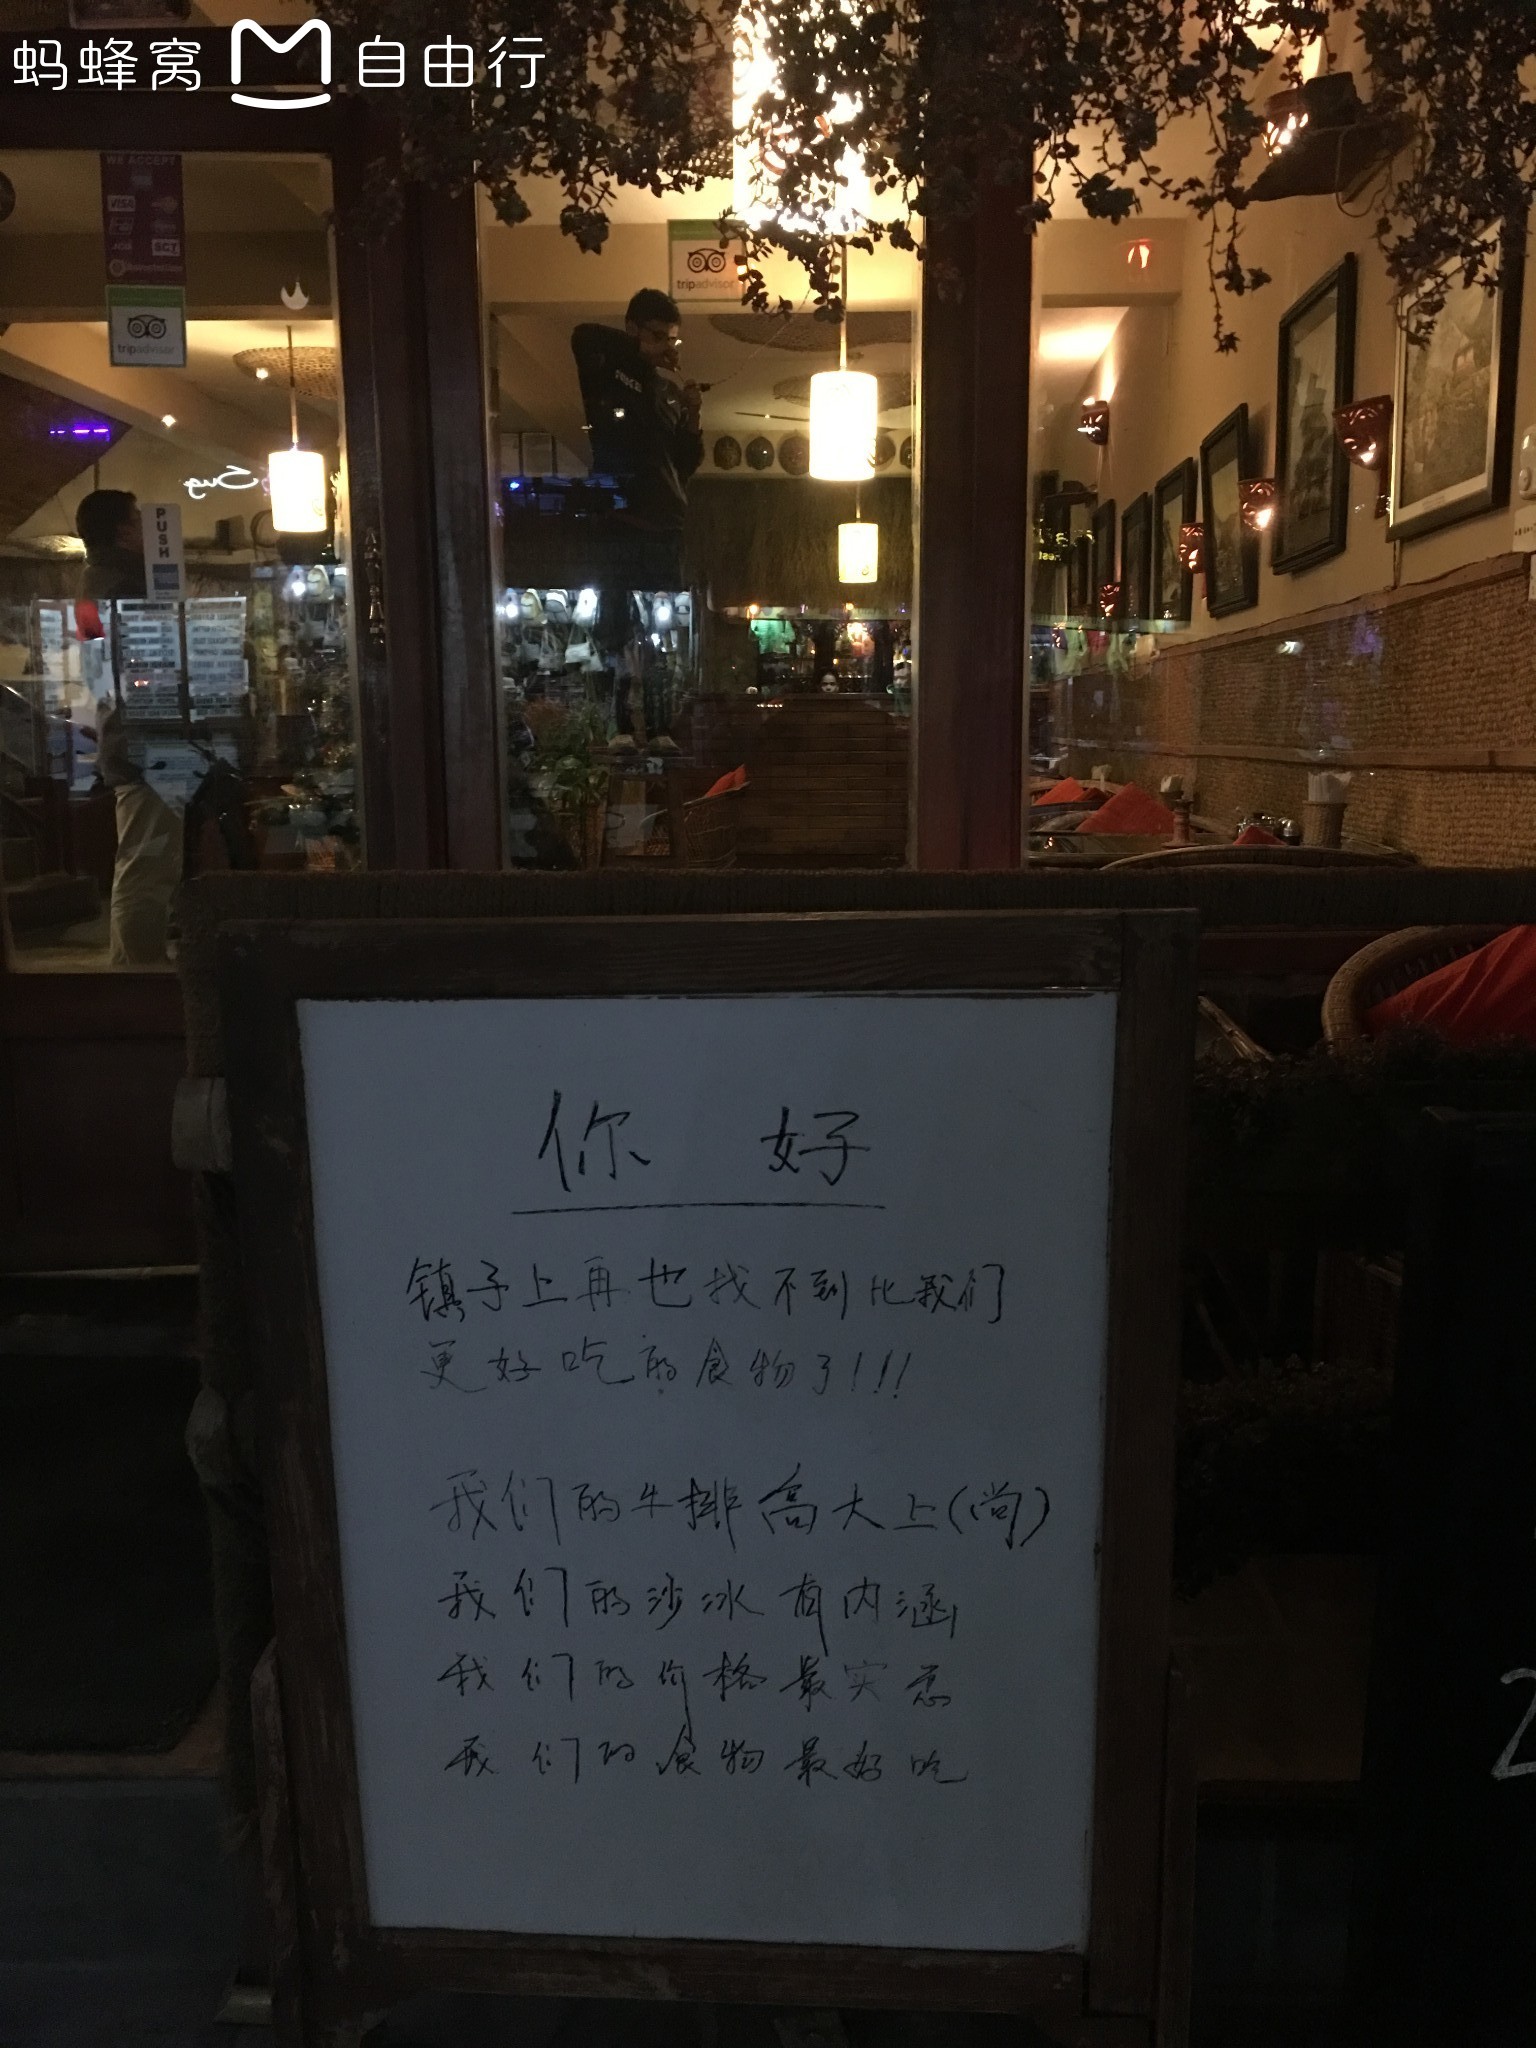 蚂蜂窝 自由行
WE ACCEPT
VISA
tripadvisor
tripadvisor
PUSH
你 好
镇子上再也找不到比我们
更好吃的食物了!!!
我们的牛排高大上(尚)
我们的沙冰有内涵
我们的价格最实惠
我们的食物最好吃
2